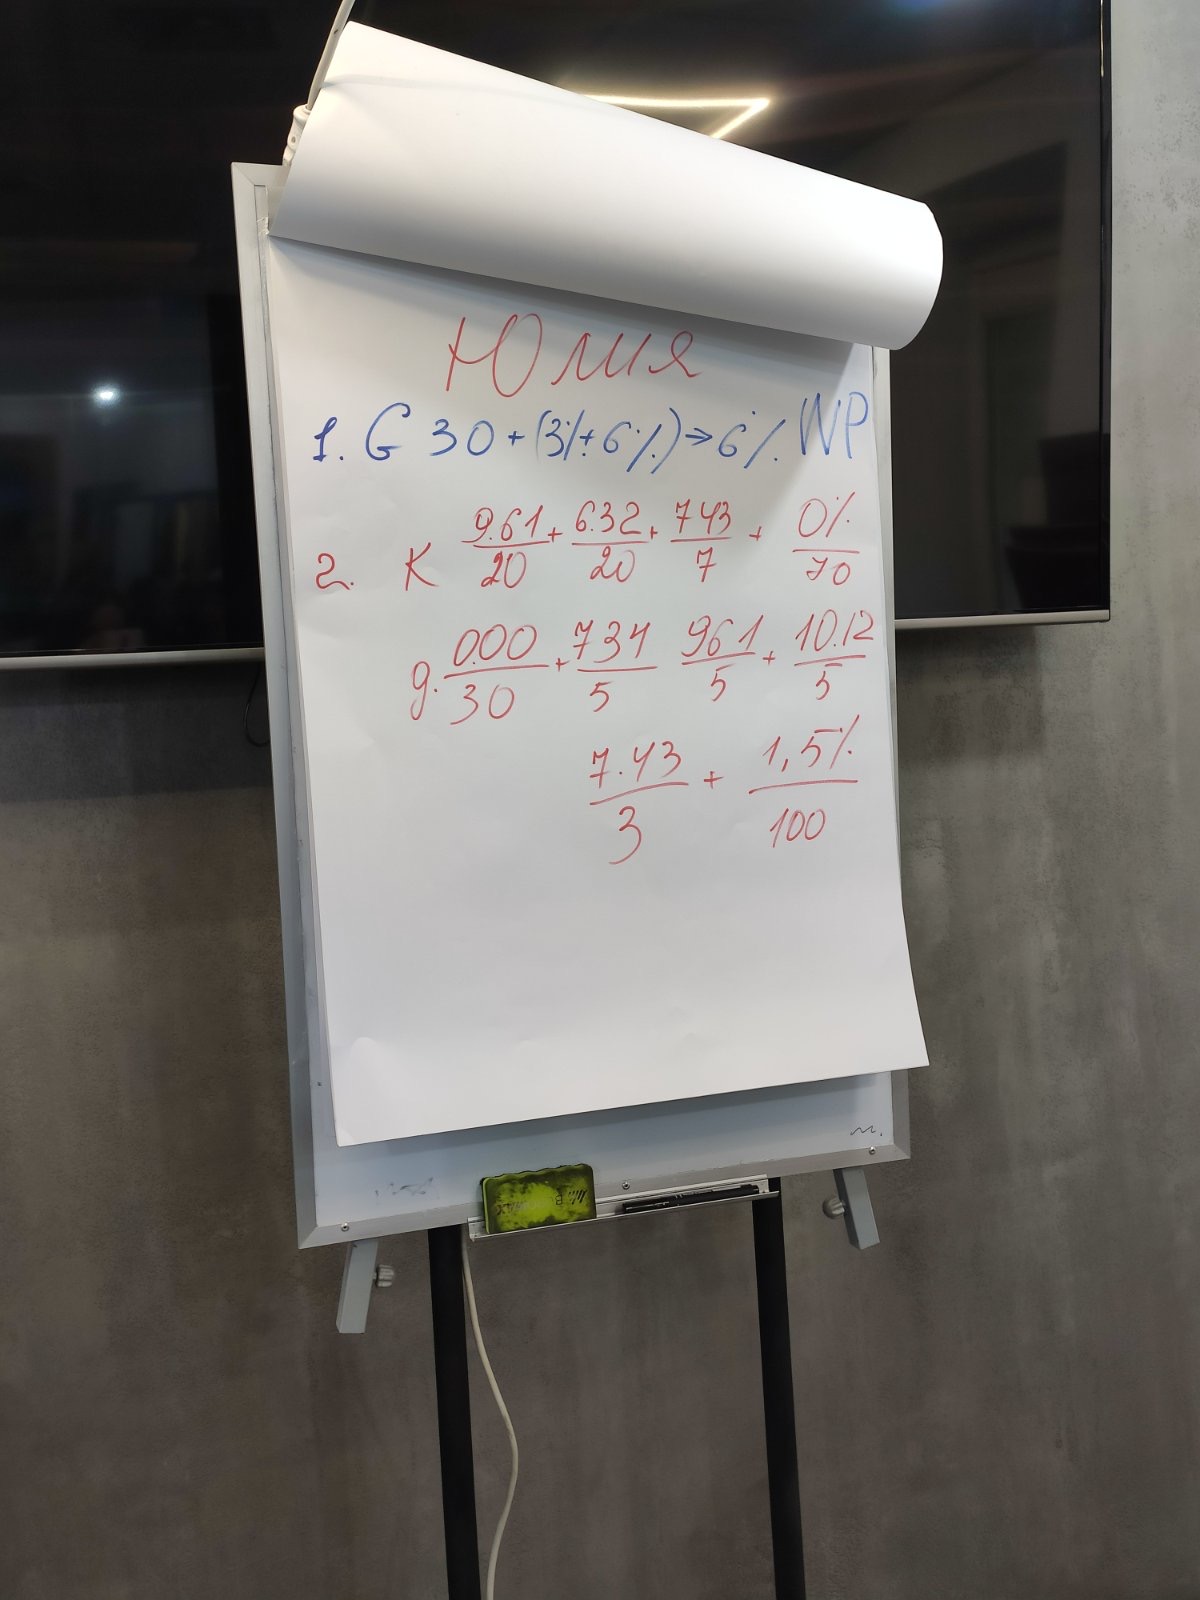 Юлия
1. G 30 + (3% + 6%) → 6% WP
2. К 9.61/20 + 6.32/20 + 743/7 + 0%/70
д. 0.00/30 + 734/5 961/5 + 10.12/5
7.43/3 + 1,5%/100